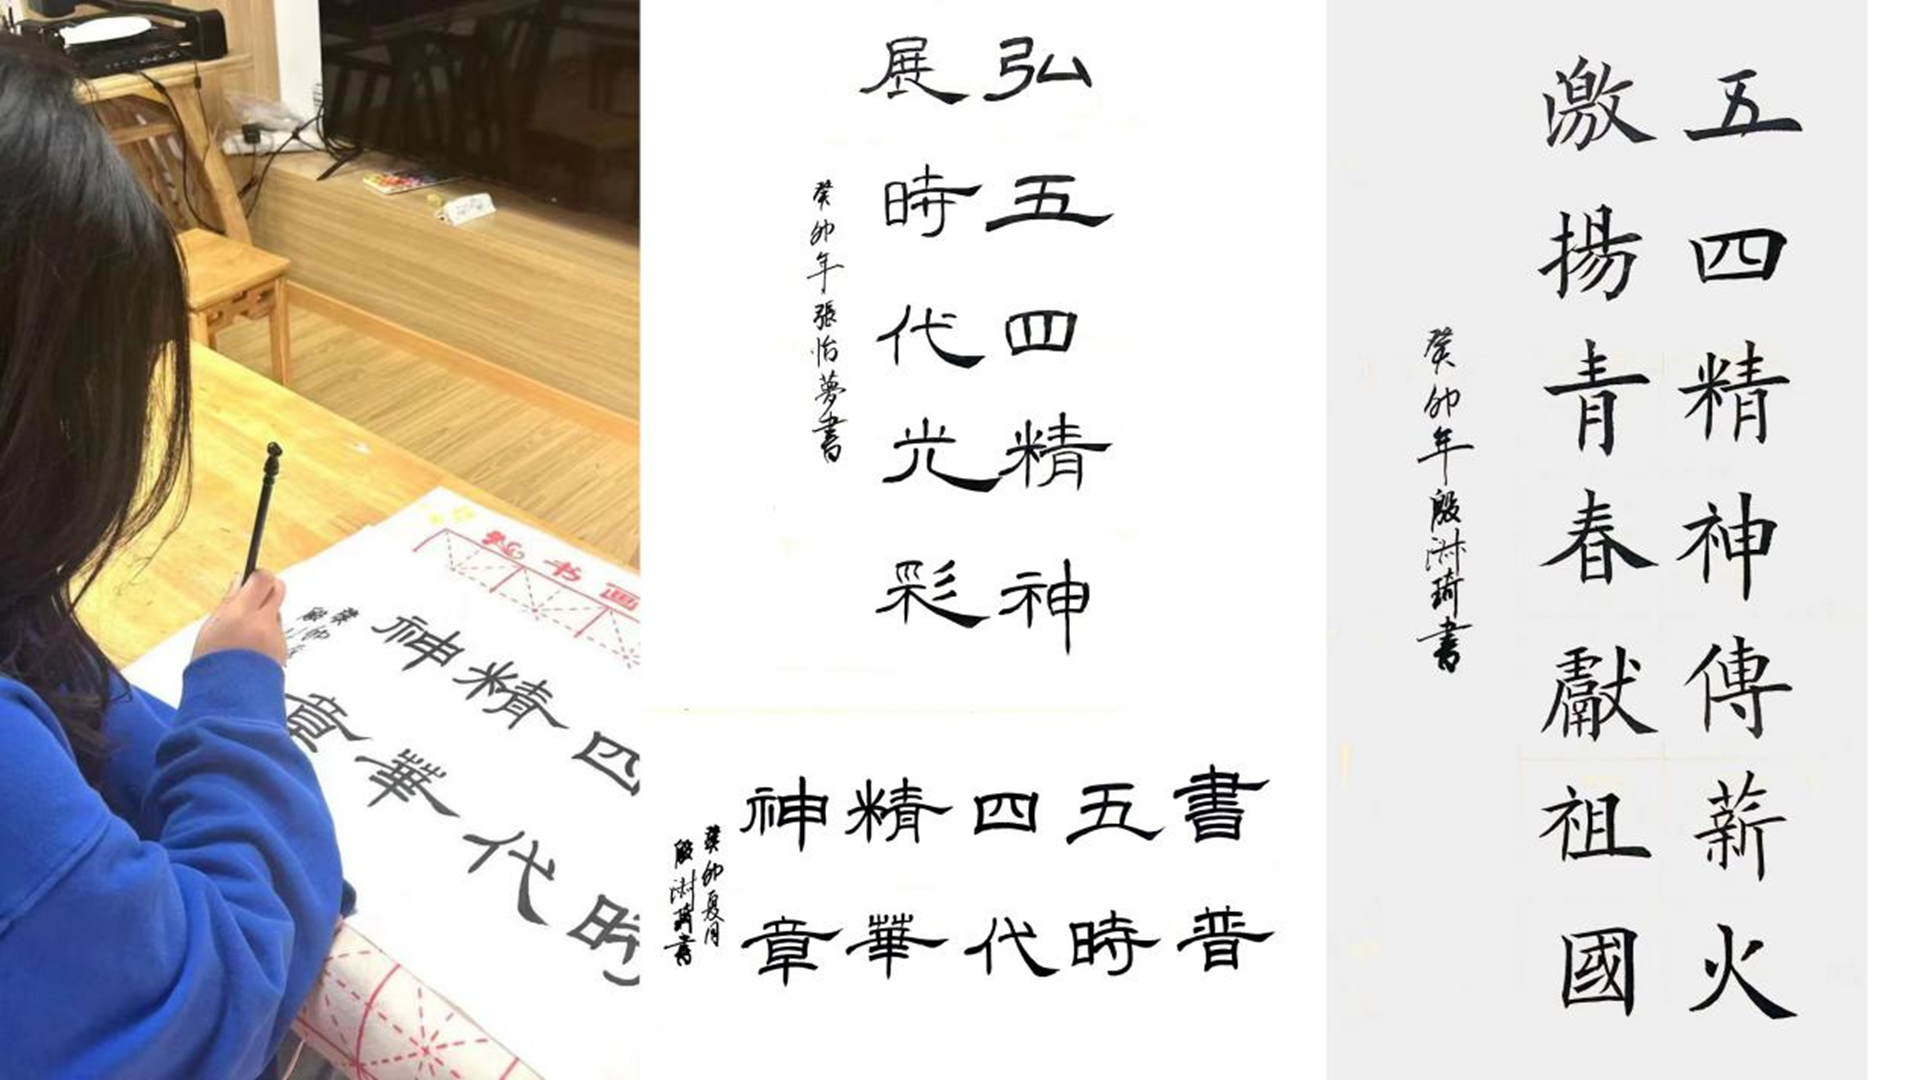 书画
四精神
時代華章
癸卯
殷
弘五四精神
展時代光彩
癸卯年張怡夢書
書五四精神
普時代華章
癸卯夏月
殷琦書
五四精神傳薪火
激揚青春獻祖國
癸卯年殷琦書